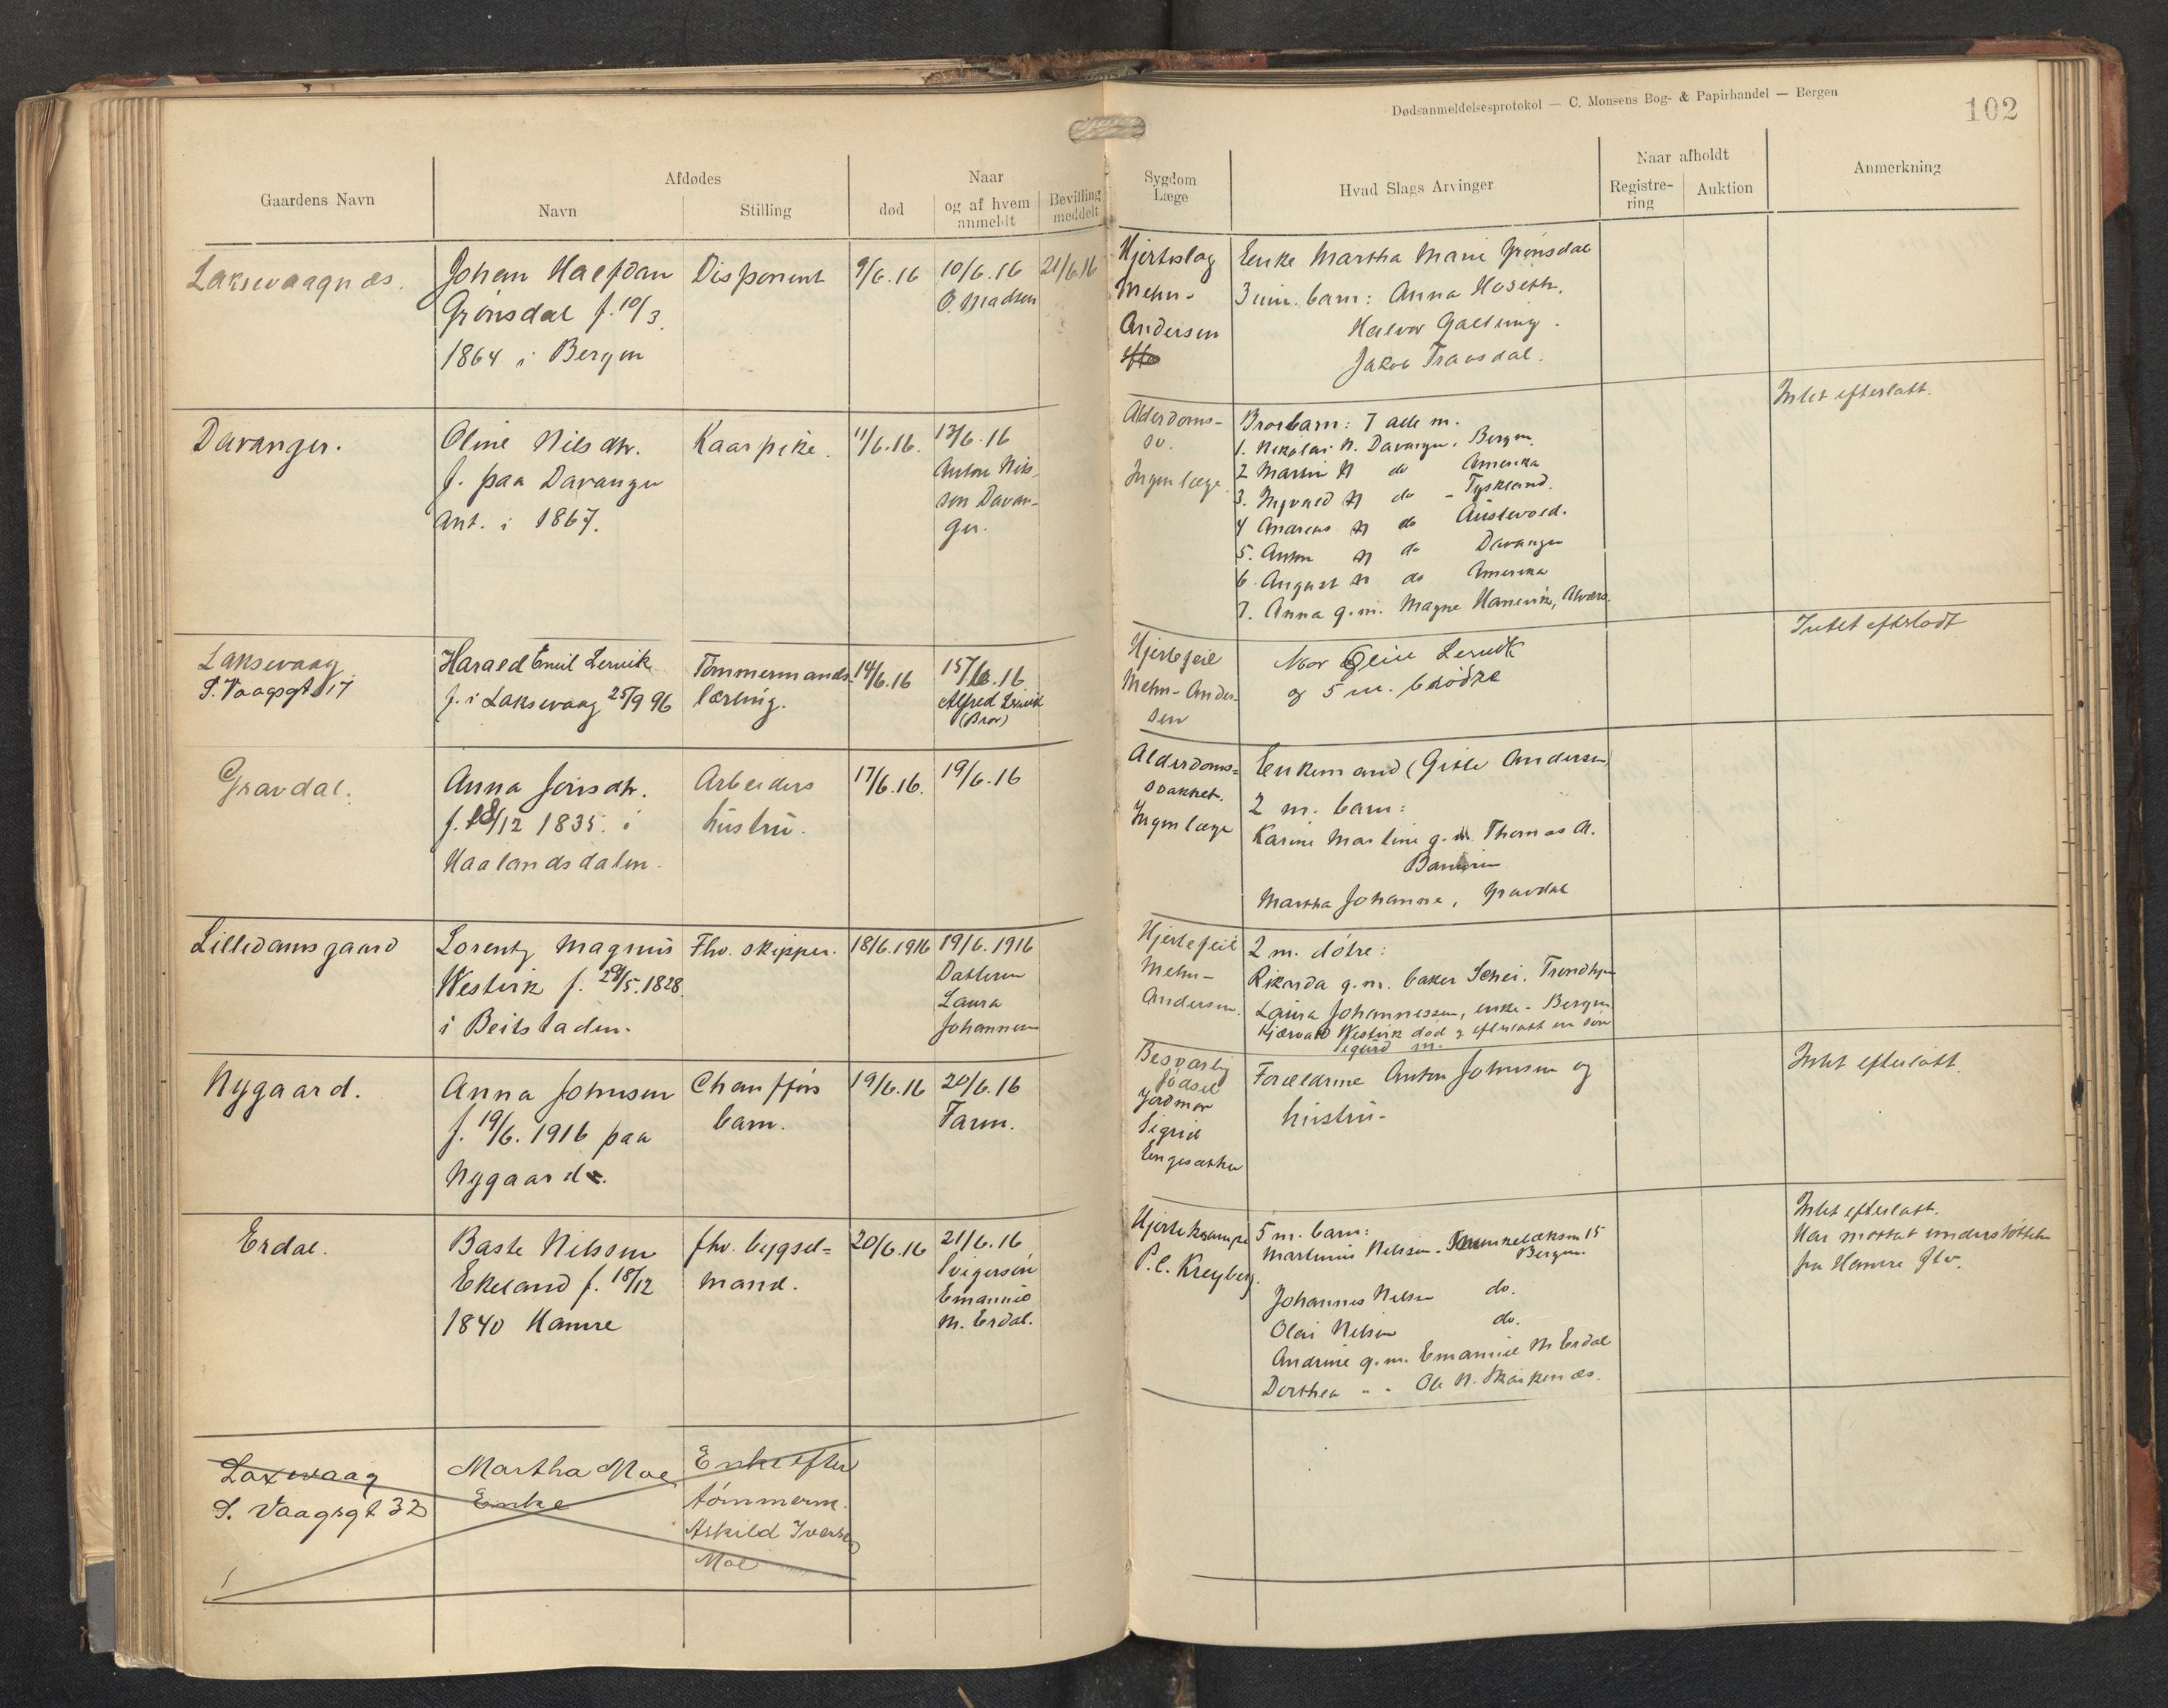 Dødsanmeldelsesprotokol — C. Monsens Bog- & Papirhandel — Bergen
102
Gaardens Navn
Afdødes
Navn
Stilling
død
Naar
og af hvem
anmeldt
Bevilling
meddelt
Sygdom
Læge
Hvad Slags Arvinger
Naar afholdt
Registre-
ring
Auktion
Anmerkning
Laksevaagnæs.
Johan Halfdan
Grønsdal f. 10/3
1864 i Bergen
Disponent
9/6.16
10/6.16
O. Madsen
21/6.16
Hjerteslag
Mehn-
Andersen
Enke Martha Marie Grønsdal
3 um. barn: Anna
Halvor
Jakob
Davanger.
Oline Nilsdtr.
f. paa Davanger
ant. i 1867.
Kaarpike.
11/6.16.
13/6.16
Anton Nils-
son Davan-
ger.
Alderdoms-
sv.
Ingen læge.
Brorbarn: 7 alle m.
1. Nikolai N. Davanger, Bergen.
2 Martin N do Amerika
3. Ingvald N do - Tyskland.
4 Andreas N do Austevold.
5. Anton N do Davanger
6. August N do Amerika
7. Anna g.m. Magne Hanevik,
Intet efterlatt.
Laksevaag
S. Vaagsgt 17
Harald Emil Lervik
f. i Laksevaag 25/9 96
Tømmermands-
lærling.
14/6.16
15/6.16
Alfred Lervik
(Bror)
Hjertefeil
Mehn-Ander-
sen
Mor Lervik
og 5 m. brødre
Intet efterladt
Gravdal.
Anna Jonsdtr.
f. 18/12 1835. i
Haalandsdalen.
Arbeiders
hustru.
17/6.16.
19/6.16
Alderdoms-
svakhet.
Ingen læge
Enkemand (Gitle Andersen)
2 m. barn:
Karine Martine g.m. Thomas A.
Martha Johanne, Gravdal
Lilledamsgaard
Lorentz Magnus
Westvik f. 29/5.1828.
i Beitstaden.
Fhv. skipper.
18/6.1916
19/6.1916
Datteren
Laura
Johannesen
Hjertefeil
Mehn-
Andersen.
2 m. døtre:
Rikarda g.m. baker Schei. Trondhjem
Laura Johannessen, enke - Bergen
Westvik død & efterlatt en søn
Sigurd m.
Nygaard.
Anna Johnsen
f. 19/6. 1916 paa
Nygaard.
Chaufførs
barn.
19/6.16
20/6.16
Faren.
Besværlig
fødsel
Jordmor
Sigrid
Engesæther
Forældrene Anton Johnsen og
hustru-
Intet efterlatt.
Erdal.
Baste Nilsson
Ekeland f. 18/12
1840 Hamre
fhv. bygsel-
mand.
20/6.16
21/6.16
Svigersøn
Emanuel
M. Erdal.
Hjertekrampe
P.C. Kreyberg.
5 m. barn:
Martinus Nilsson - 15
Bergen.
Johannes Nilsen do.
Olai Nilsen do.
Andrine g.m. Emanuel M Erdal
Dorthea " " Ole N.
Intet efterlatt.
Har mottat understøttelse
fra Hamre ftv.
Laxevaag
S. Vaagsgt 32
Martha Moe
Enke
Enke efter
tømmerm.
Askild Iversen
Moe